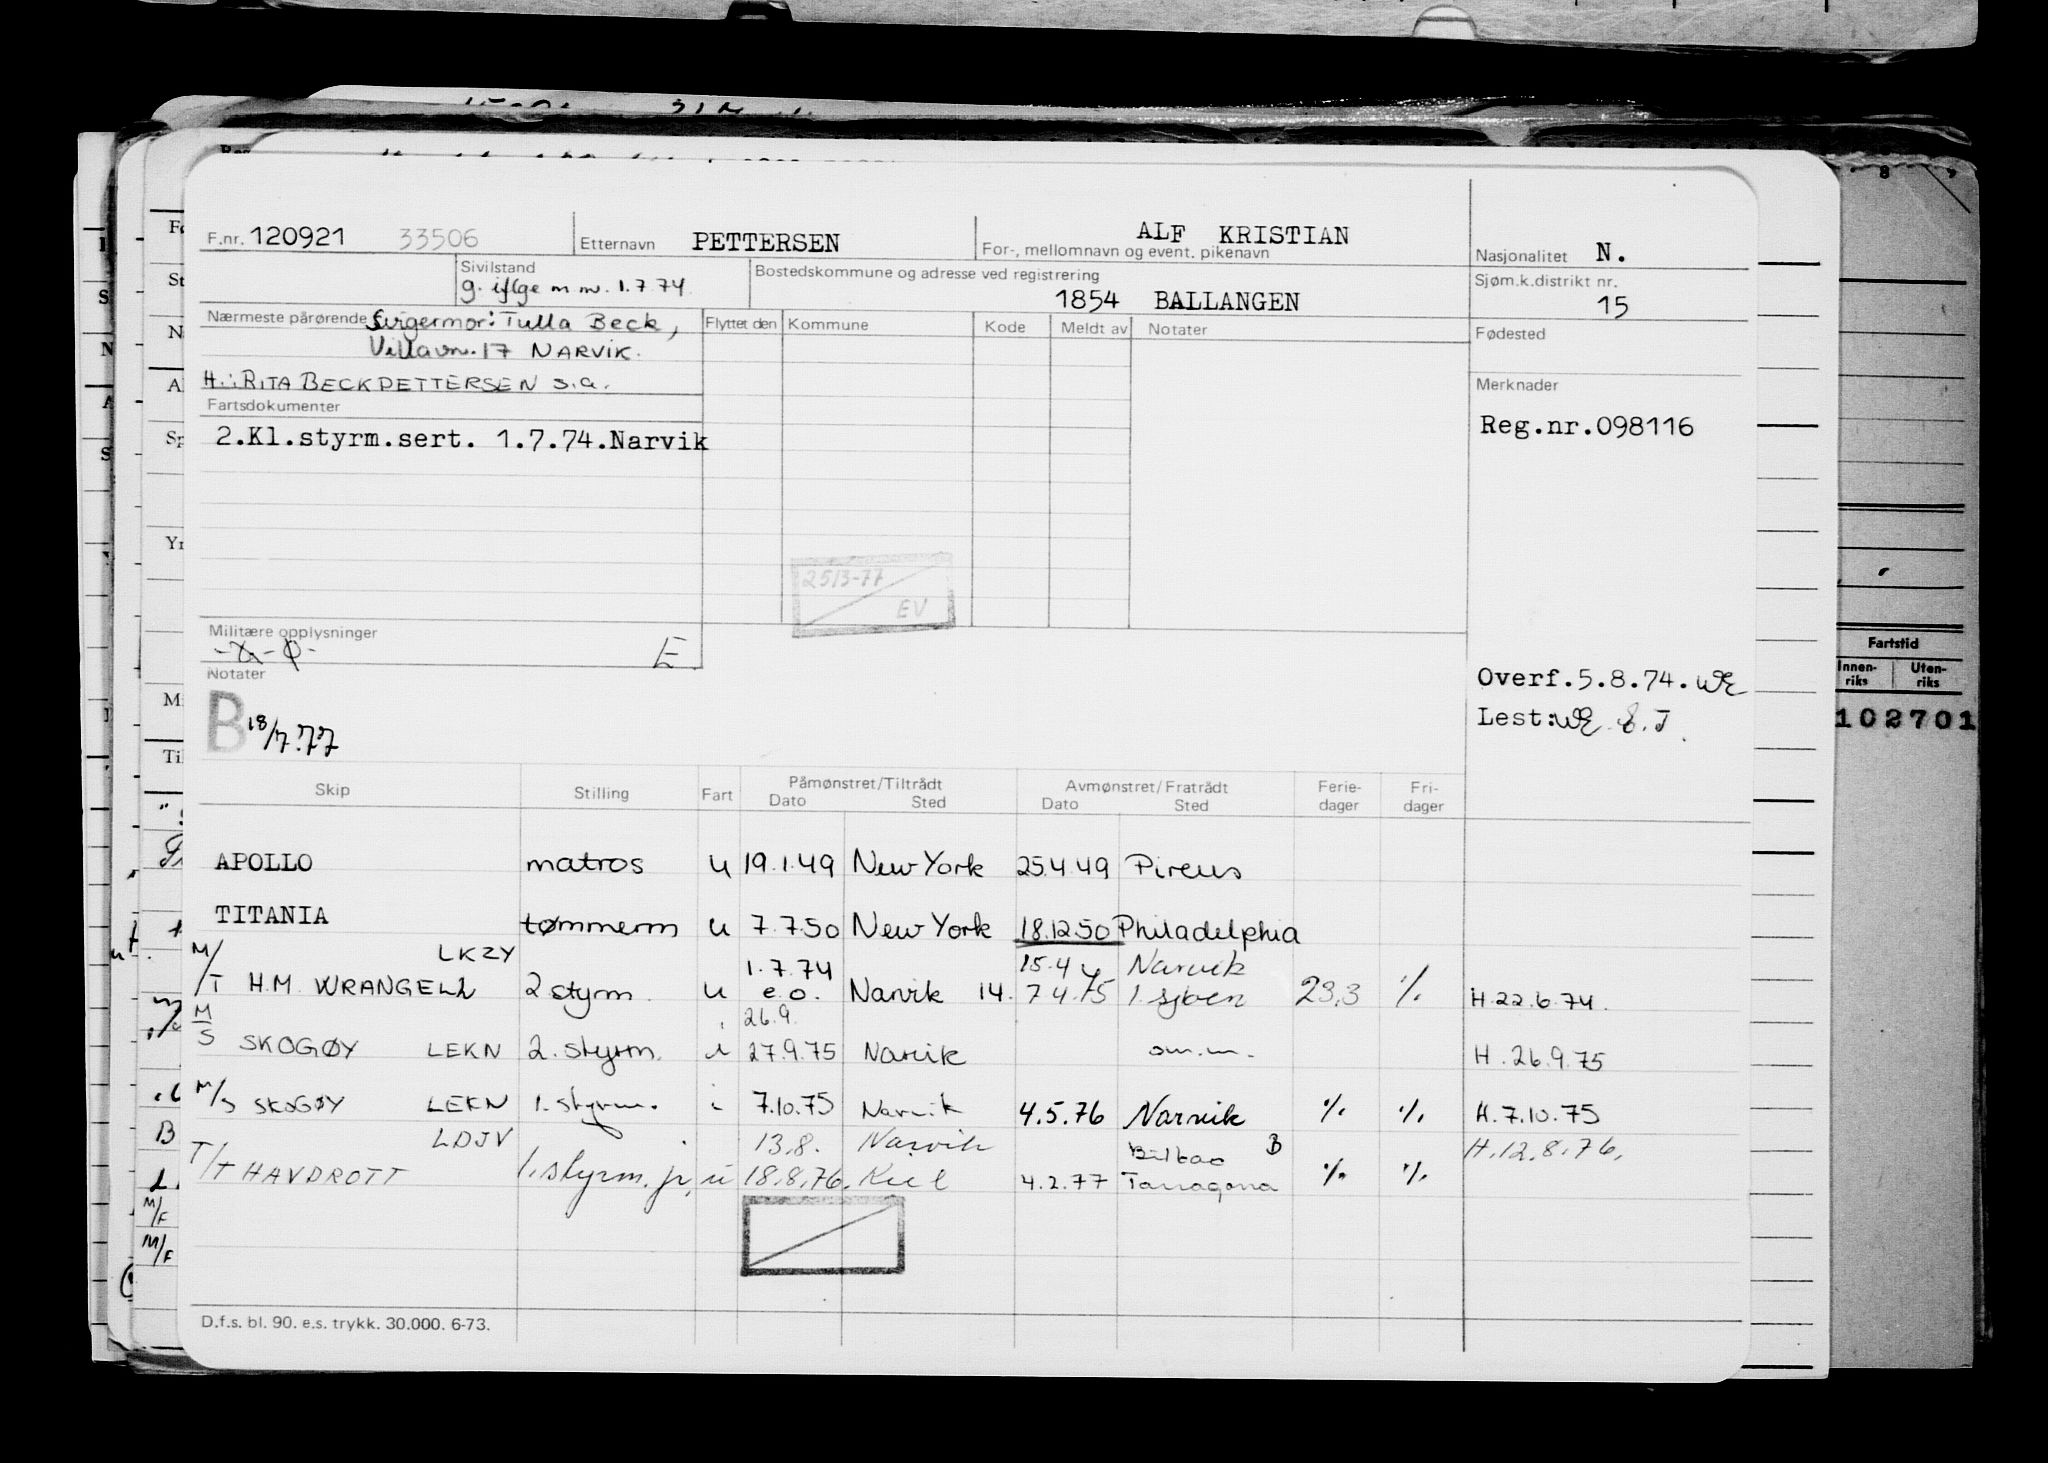 F.nr. 120921 33506 Etternavn PETTERSEN ALF KRISTIAN
For-, mellomnavn og event. pikenavn
Nasjonalitet N.
Sivilstand
g. iflge m m. 1.7.74
Bostedskommune og adresse ved registrering
1854 BALLANGEN
Sjøm.k.distrikt nr.
15
Nærmeste pårørende Svigermor: Tulla Beck,
Villavn. 17 NARVIK.
H.: RITA BECK PETTERSEN s.a.
Flyttet den Kommune Kode Meldt av Notater
Fødested
Merknader
Reg.nr.098116
Fartsdokumenter
2.Kl.styrm.sert. 1.7.74.Narvik
25/3-77
EV
Militære opplysninger
E
Notater
B 18/7.77
Overf.5.8.74.WE
Lest:WE
Fartstid
Innen-riks Uten-riks
102701
Skip Stilling Fart Påmønstret/Tiltrådt Avmønstret/Fratrådt Ferie-dager Fri-dager
Dato Sted Dato Sted
APOLLO matros u 19.1.49 New York 25.4.49 Pireus
TITANIA tømmerm u 7.7.50 New York 18.12.50 Philadelphia
M/T H.M. WRANGELL LKZY 2 styrm. u 1.7.74 e.o. Narvik 14. 15.4 7.4.75 Narvik I sjøen 23,3 % H.22.6.74.
M/S SKOGØY LEKN 2. styrm. i 26.9. 27.9.75 Narvik om.m. H.26.9.75
M/S SKOGØY LEKN 1. styrm. i 7.10.75 Narvik 4.5.76 Narvik % % H.7.10.75
T/T HAVDROTT LDJV 1. styrm. jr. u 13.8. Narvik 18.8.76. Kiel 4.2.77 Bilbao B Tarragona % % H.12.8.76.
D.f.s. bl. 90. e.s. trykk. 30.000. 6-73.